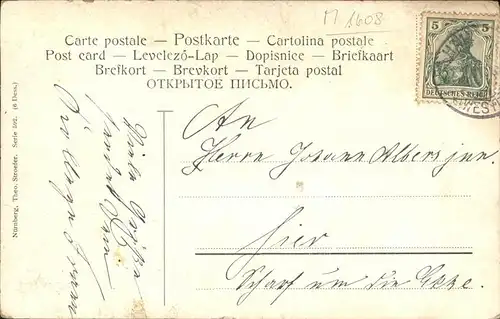 M 1608
Carte postale – Postkarte – Cartolina postale
Post card – Levelező-Lap – Dopisnice – Briefkaart
Brefkort – Brevkort – Tarjeta postal
ОТКРЫТОЕ ПИСЬМО.
5 5
DEUTSCHES REICH
An
Herrn Johann Albers jun.
Hier
Scharf um die Ecke.
Viele Grüße
sendet Dem
Nürnberg, Theo. Stroefer. Serie 592. (6 Dess.)